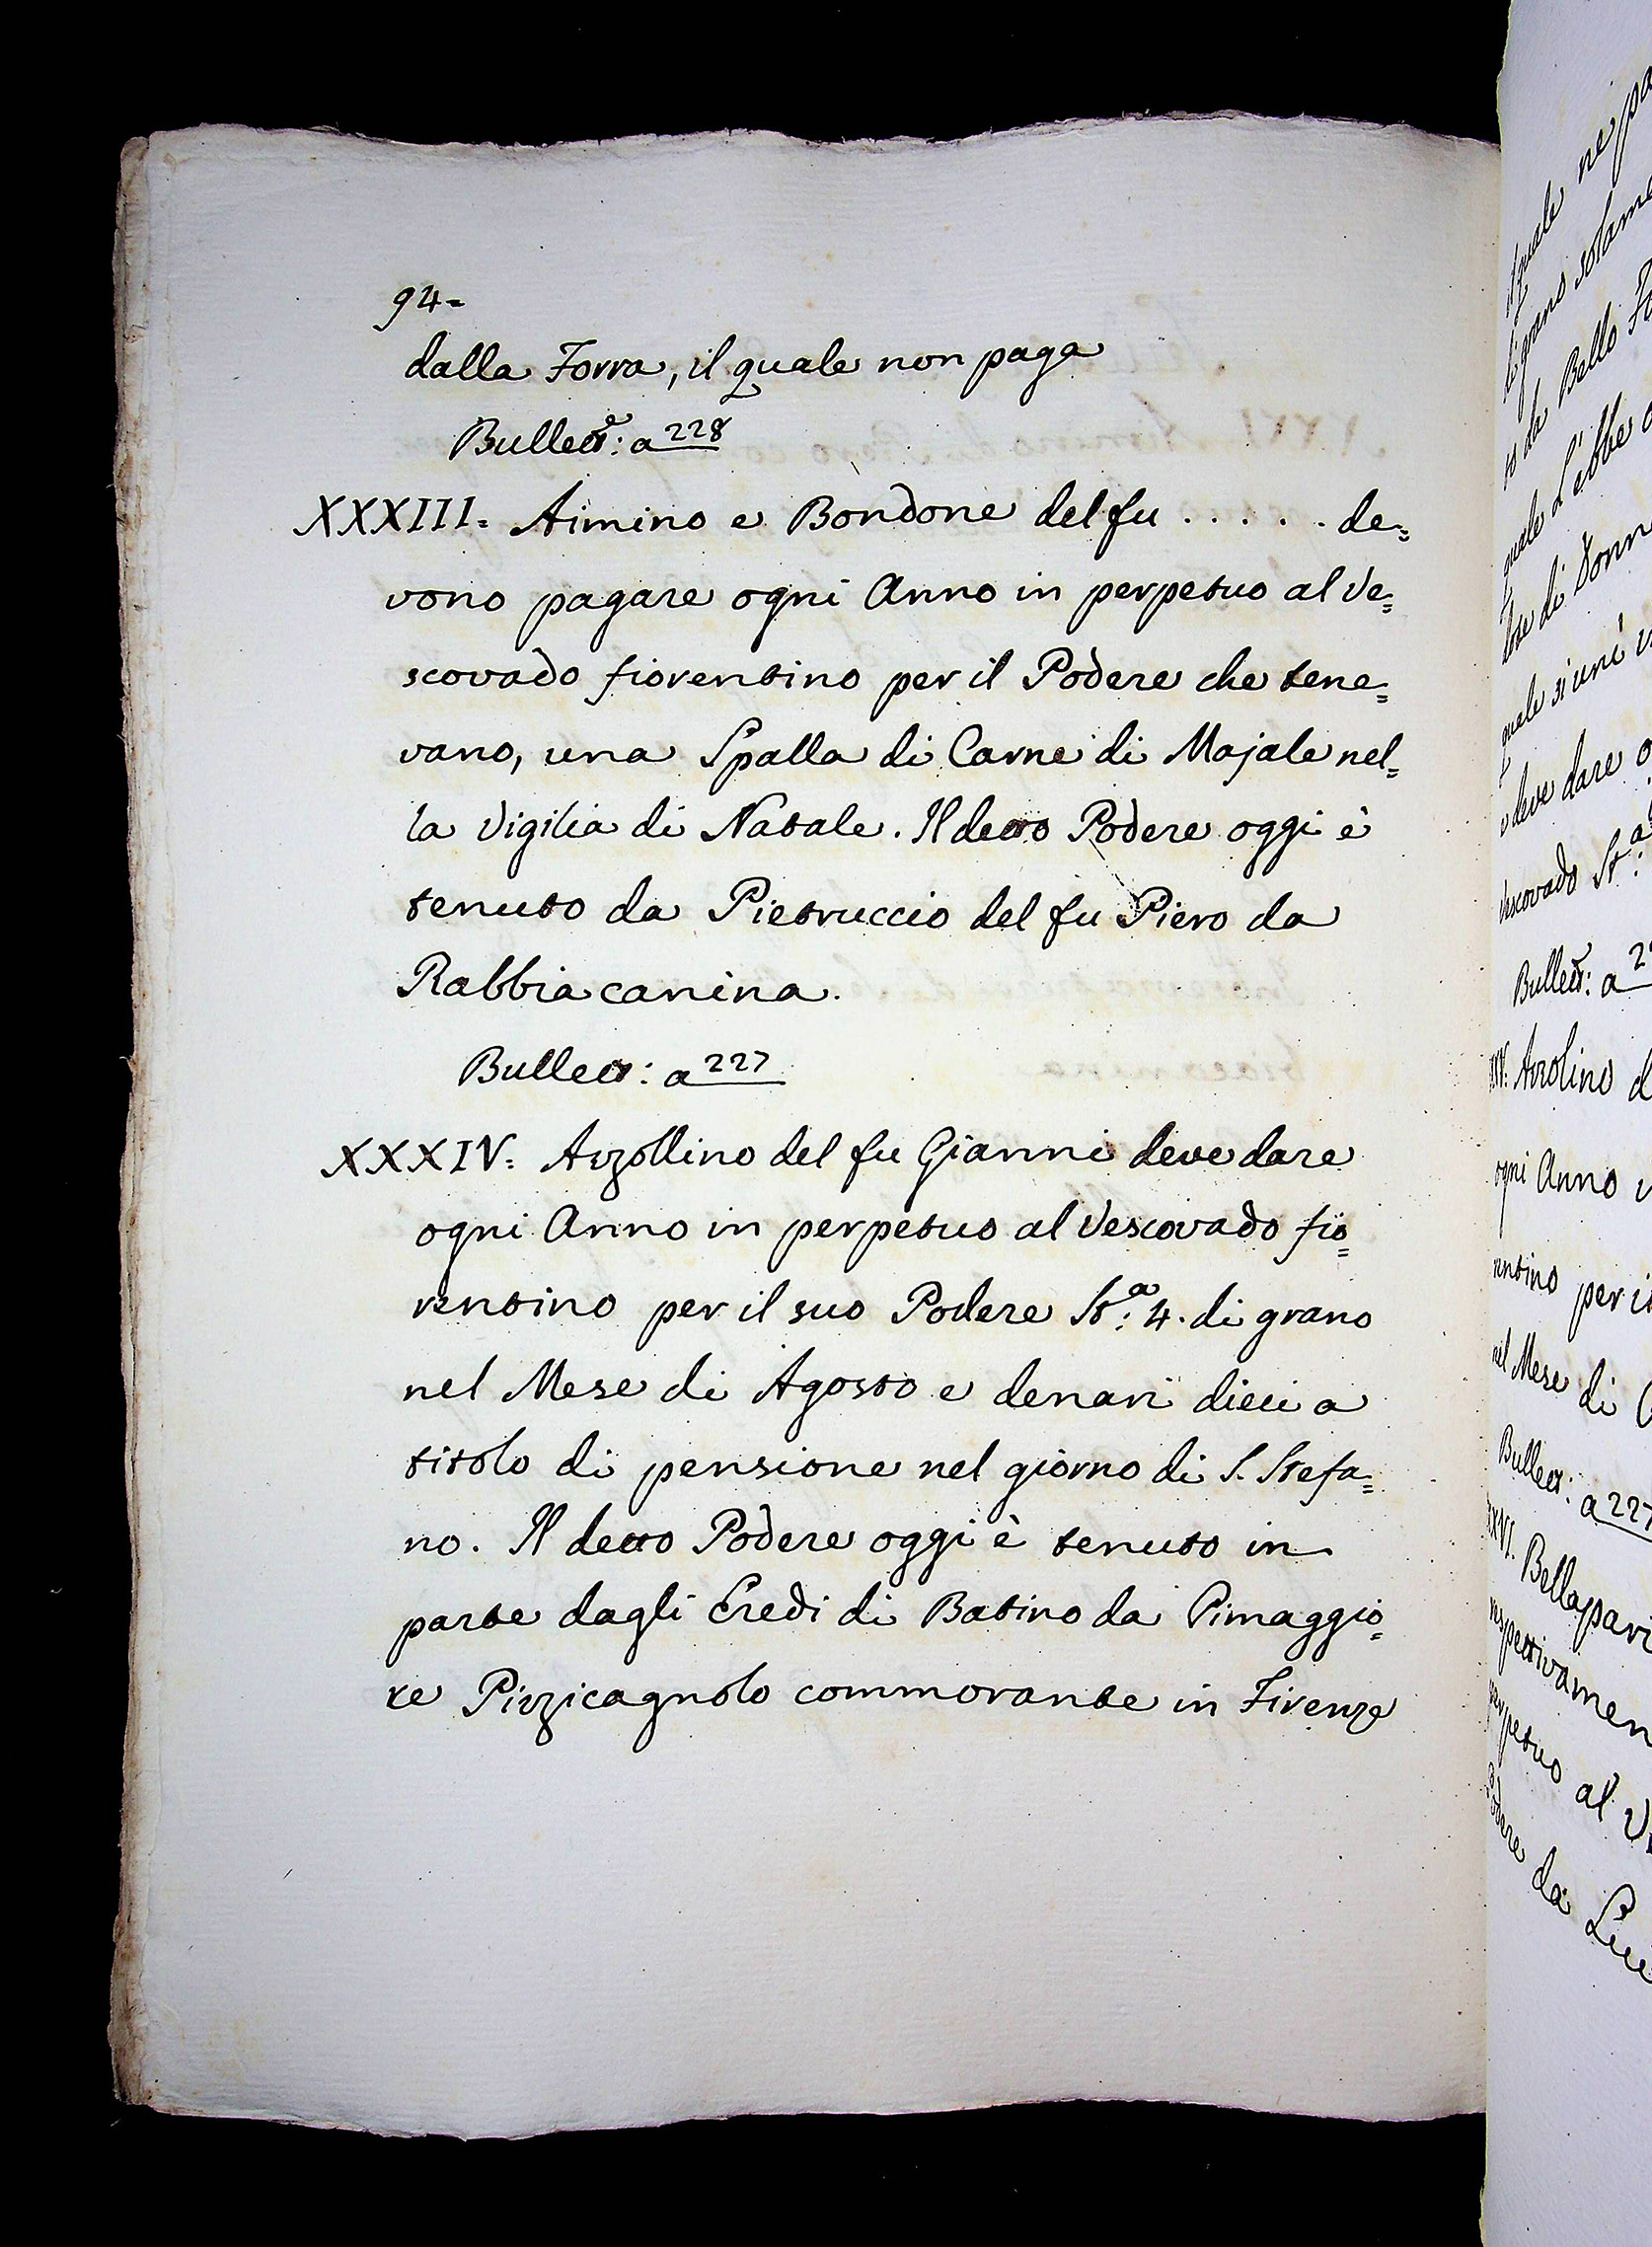 94=
dalla Forra, il quale non paga
Bullett.e: a 228
XXXIII= Aimino e Bondone del fu . . . . . de=
vono pagare ogni Anno in perpetuo al Ve=
scovado fiorentino per il Podere che tene=
vano, una Spalla di Carne di Majale nel=
la Vigilia di Natale. Il detto Podere oggi è
tenuto da Pietruccio del fu Piero da
Rabbiacanina.
Bullett: a 227
XXXIV= Azzollino del fu Gianni deve dare
ogni Anno in perpetuo al Vescovado fio=
rentino per il suo Podere St.a: 4. di grano
nel Mese di Agosto e denari dieci a
titolo di pensione nel giorno di S. Stefa=
no. Il detto Podere oggi è tenuto in
parte dagli Eredi di Batino da Cimaggio=
re Pizzicagnolo commorante in Firenze
quale ne pa
grano solame
da Bello Fo
quale L'ebbe
di Donn
quale si unì
deve dare o
Vescovado St.a:
Bullett: a 22
XXV. Azzolino d
ogni Anno
rentino per i
nel Mese di
Bullett: a 227
XXXVI. Bellapari
respettivamen
perpetuo al V
Podere da Luc